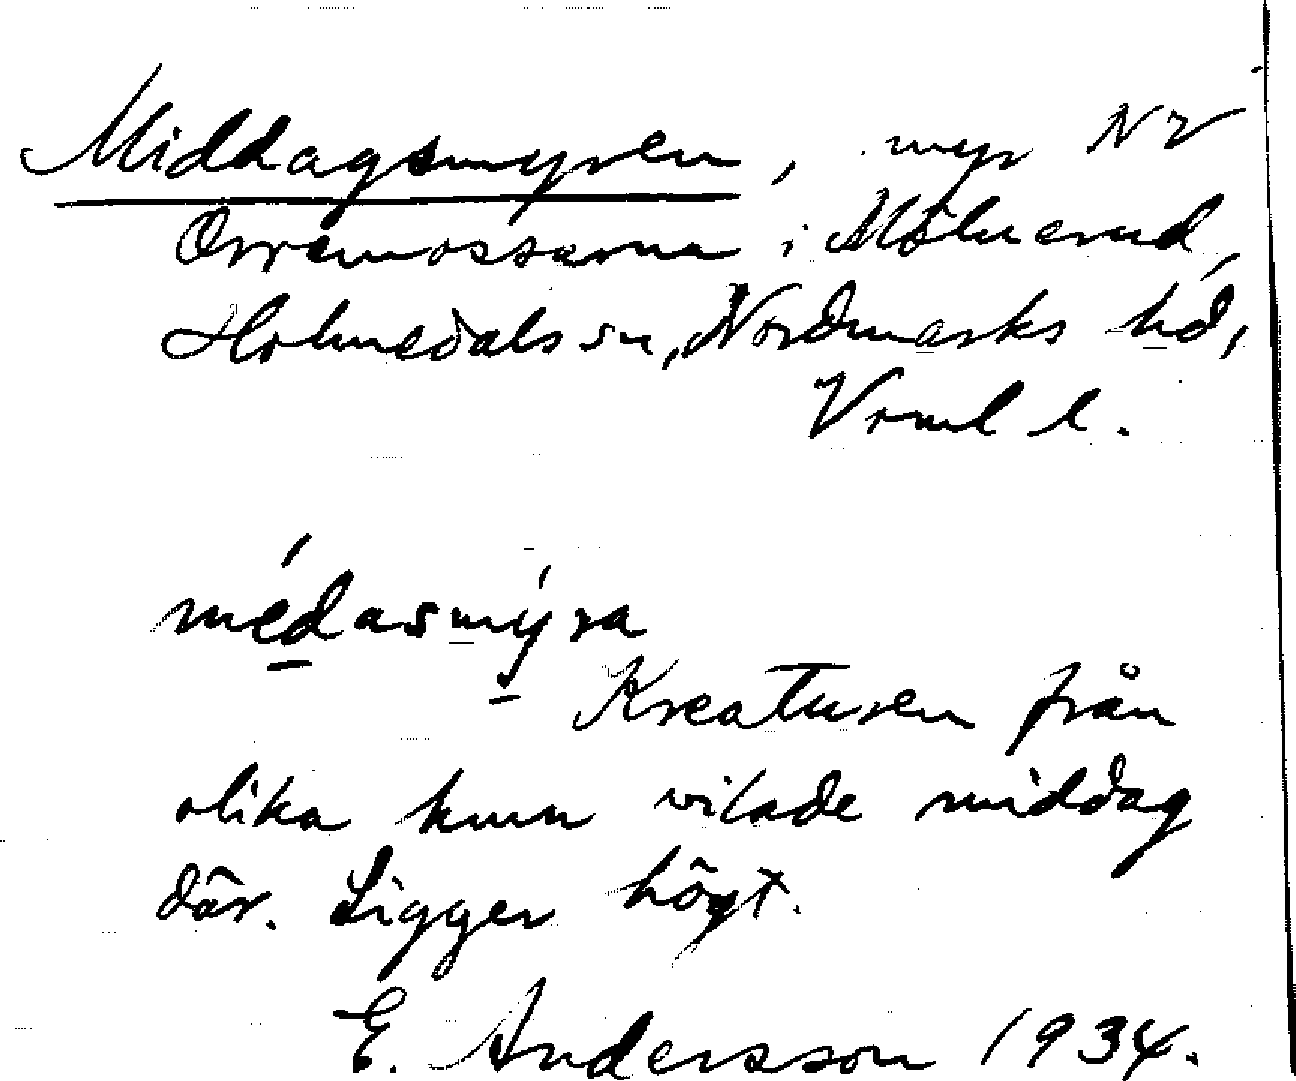 Middagsmyren, myr NV
Orremossarna i Mölnerud,
Holmedals sn, Nordmarks hd,
Vrml l.
médasmýra
Kreaturen från
olika hmn vilade middag
där. Ligger högt.
E. Andersson 1934.